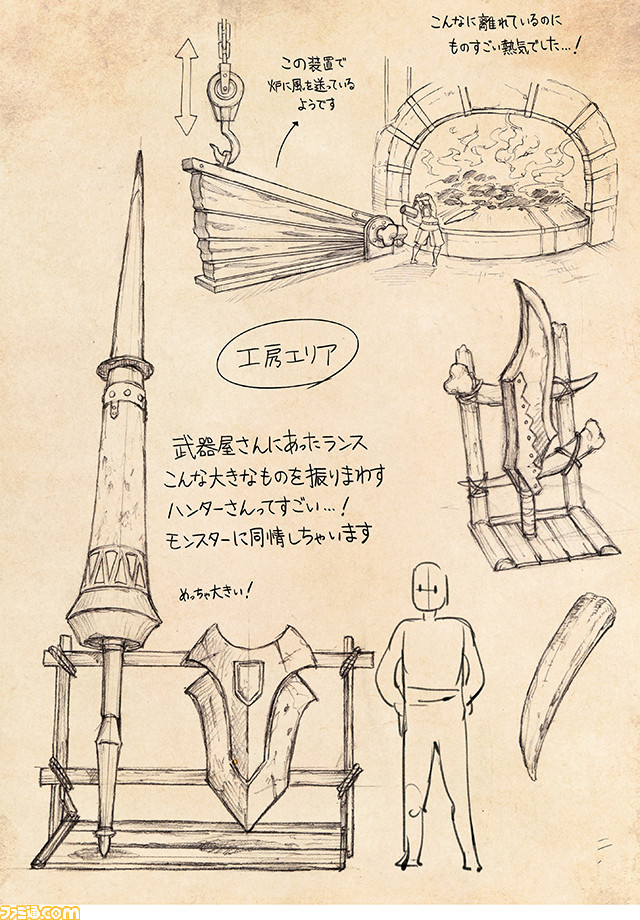 こんなに離れているのに
ものすごい熱気でした…!
この装置で
炉に風を送っている
ようです
工房エリア
武器屋さんにあったランス
こんな大きなものを振りまわす
ハンターさんってすごい…!
モンスターに同情しちゃいます
めっちゃ大きい!
ファミ通.com